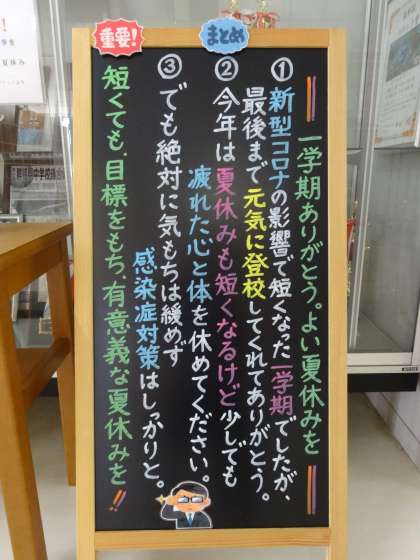 一学期ありがとう。よい夏休みを
まとめ
①新型コロナの影響で短くなった一学期でしたが、
最後まで元気に登校してくれてありがとう。
②今年は夏休みも短くなるけど少しでも
疲れた心と体を休めてください。
③でも絶対に気もちは緩めず
感染症対策はしっかりと。
重要!
短くても、目標をもち、有意義な夏休みを!!
夏休み